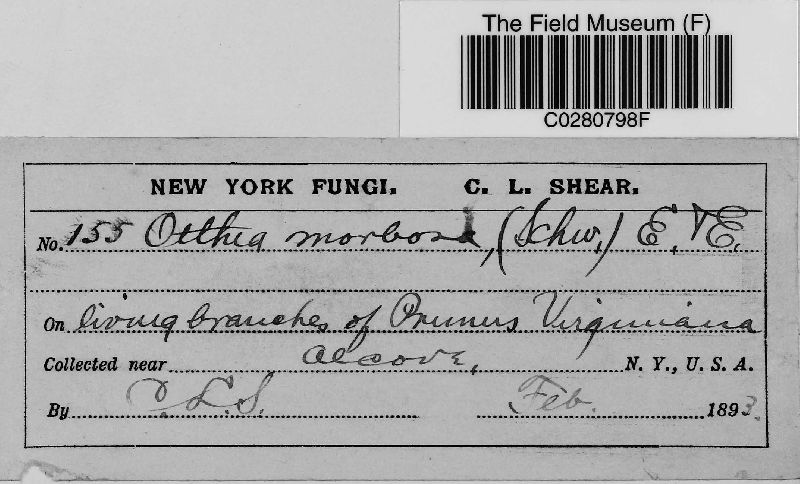 The Field Museum (F)
C0280798F
NEW YORK FUNGI. C. L. SHEAR.
No. 155 Otthia morbosa, (Schw.) E. & E.
On living branches of Prunus Virginiana
Collected near Alcove, N. Y., U. S. A.
By C. L. S. Feb. 1893.